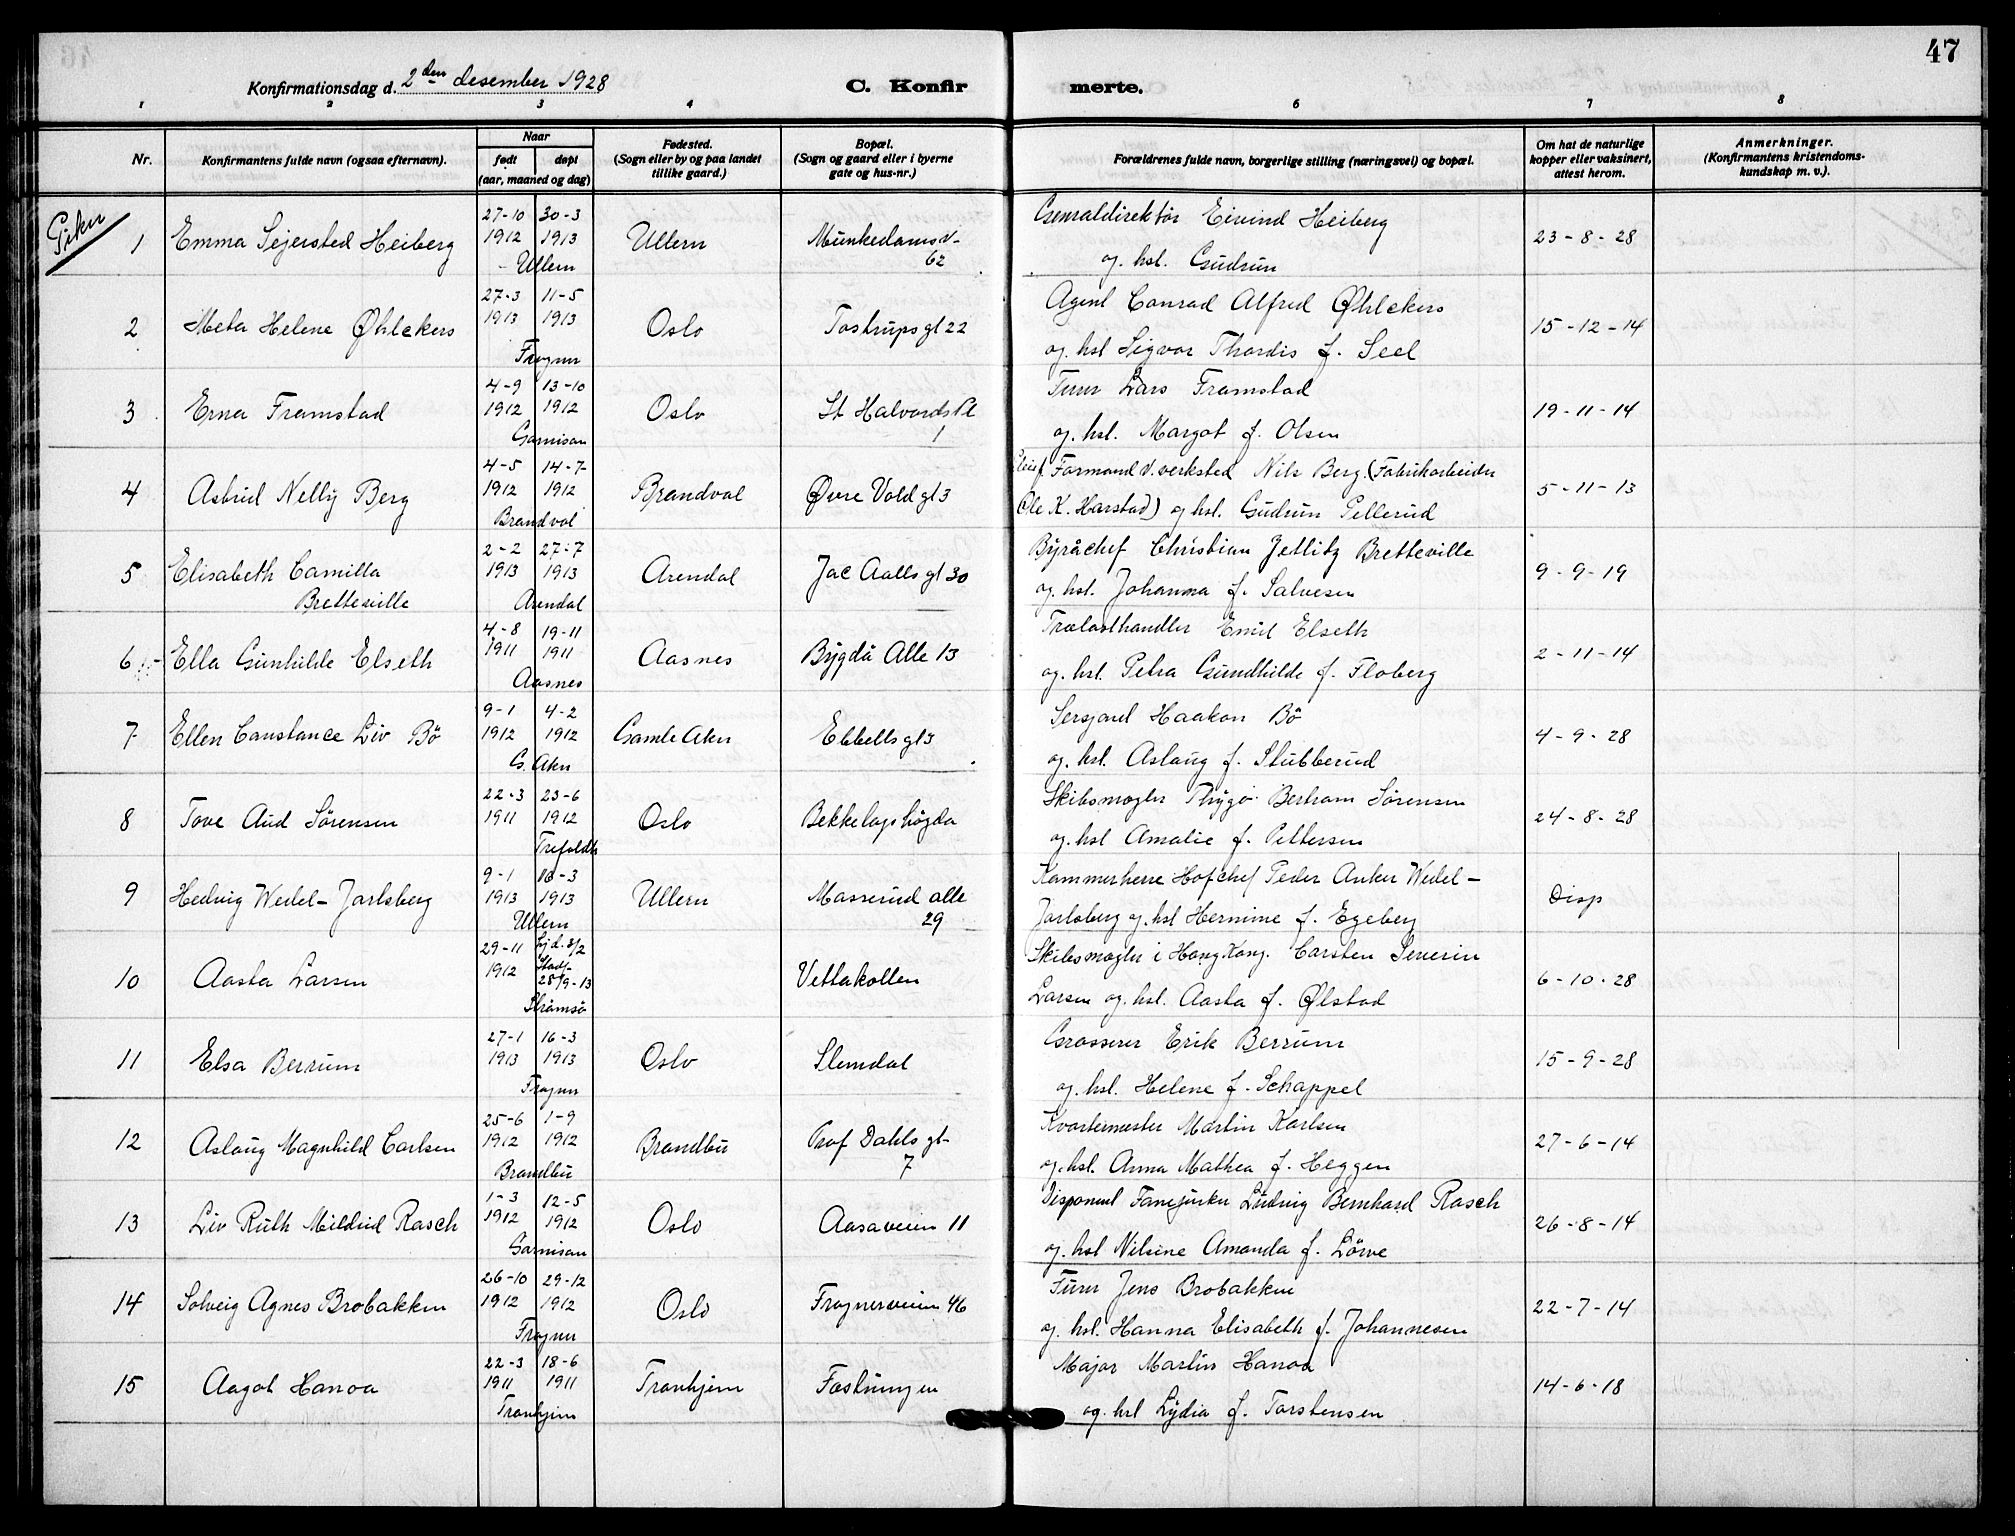 47
Konfirmationsdag d. 2den desember 1928
C. Konfir
merte.
1 2 3 4 6 7 8
Nr.
Konfirmantens fulde navn (ogsaa efternavn).
Naar
født
døpt
(aar, maaned og dag)
Fødested.
(Sogn eller by og paa landet
tillike gaard.)
Bopæl.
(Sogn og gaard eller i byerne
gate og hus-nr.)
Forældrenes fulde navn, borgerlige stilling (næringsvei) og bopæl.
Om hat de naturlige
kopper eller vaksinert,
attest herom.
Anmerkninger.
(Konfirmantens kristendoms-
kundskap m. v.).
Piker
27-10 30-3 Generaldirektör Eivind Heiberg
1 Emma Sejersted Heiberg 1912 1913 Ullern Munkedamsv- 23-8-28
Ullern 62 og. hst. Gudrun
27-3 11-5 Agent Conrad Alfred Øhlckers
2 Meta Helene Øhlckers 1913 1913 Oslo Tostrupsgt 22 15-12-14
Frogner og. hst Sigvor Thordis f. Seel
4-9 13-10 Furer Lars Framstad
3 Erna Framstad 1912 1912 Oslo St Halvards Pl 19-11-14
Garnison 1 og. hst. Margot f. Olsen
4-5 14-7 Pleief Formand v. verksted Nils Berg (Fabrikarbeider
4 Astrid Nelly Berg 1912 1912 Brandval Øvre Vold gt 3 5-11-13
Brandval Ole K. Harstad) og hst. Gudrun Pellerud
2-2 27-7 Byråchef Christian Zetlitz Bretteville
5 Elisabeth Camilla 1913 1913 Arendal Jac Aalls gt 30 9-9-19
Bretteville Arendal og. hst. Johanna f. Salvesen
4-8 19-11 Trælasthandler Emil Elseth
6 Ella Gunhilde Elseth 1911 1911 Aasnes Bygdö Alle 13 2-11-14
Aasnes og. hst. Petra Gundhilde f. Floberg
9-1 4-2 Sersjant Haakon Bö
7 Ellen Constance Liv Bö 1912 1912 Gamle Aker Ebbells gt 3 4-9-28
G. Aker og. hst. Aslaug f. Stubberud
22-3 23-6 Skibsmægler Thygo Bertram Sörensen
8 Tove Aud Sörensen 1911 1912 Oslo Bekkelagshögda 24-8-28
Trefoldh og. hst Amalie f. Pettersen
9-1 16-3 Kammerherre Hofchef Peder Anker Wedel-
9 Hedvig Wedel-Jarlsberg 1913 1913 Ullern Masserud alle Disp
Ullern 29 Jarlsberg og. hst Hermine f. Egeberg
29-11 Hj.d. 3/2 Skibsmægler i Hong Kong. Carsten Severin
10 Aasta Larsen 1912 Stadf- 28/9-13 Vettakollen 6-10-28
Strömsö Larsen og. hst. Aasta f. Ølstad
27-1 16-3 Grosserer Erik Berrum
11 Elsa Berrum 1913 1913 Oslo Slemdal 15-9-28
Frogner og. hst. Helene f. Schappel
25-6 1-9 Kvartermester Martin Karlsen
12 Aslaug Magnhild Carlsen 1912 1912 Brandbu Prof Dahls gt- 27-6-14
Brandbu 7 og. hst. Anna Mathea f. Heggen
1-3 12-5 Disponent Fanejunker Ludvig Bernhard Rasch
13 Liv Ruth Mildrid Rasch 1912 1912 Oslo Aasaveien 11 26-8-14
Garnison og. hst Nilsine Amanda f. Lörve
26-10 29-12 Furer Jens Brobakken
14 Solveig Agnes Brobakken 1912 1912 Oslo Frognerveien 46 22-7-14
Frogner og. hst. Hanna Elisabeth f. Johannesen
22-3 18-6 Major Martin Hanoa
15 Aagot Hanoa 1911 1911 Tronhjem Fæstningen 14-6-18
Tronhjem og. hst Lydia f. Torstensen